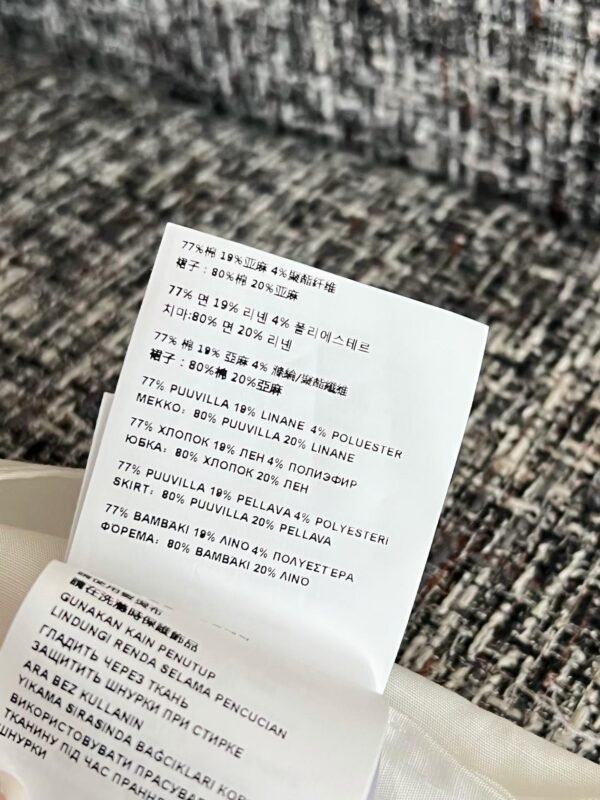 77%棉 19%亚麻 4%聚酯纤维
裙子：80%棉 20%亚麻
77% 면 19% 리넨 4% 폴리에스테르
치마:80% 면 20% 리넨
77% 棉 19% 亞麻 4% 滌綸/聚酯纖維
裙子：80%棉 20%亞麻
77% PUUVILLA 19% LINANE 4% POLUESTER
MEKKO: 80% PUUVILLA 20% LINANE
77% ХЛОПОК 19% ЛЕН 4% ПОЛИЭФИР
ЮБКА: 80% ХЛОПОК 20% ЛЕН
77% PUUVILLA 19% PELLAVA 4% POLYESTERI
SKIRT: 80% PUUVILLA 20% PELLAVA
77% ΒΑΜΒΑΚΙ 19% ΛΙΝΟ 4% ΠΟΛΥΕΣΤΕΡΑ
ΦΟΡΕΜΑ: 80% ΒΑΜΒΑΚΙ 20% ΛΙΝΟ
請在洗滌時保護飾品
GUNAKAN KAIN PENUTUP
LINDUNGI RENDA SELAMA PENCUCIAN
ГЛАДИТЬ ЧЕРЕЗ ТКАНЬ
ЗАЩИТИТЬ ШНУРКИ ПРИ СТИРКЕ
ARA BEZ KULLANIN
YIKAMA SIRASINDA BAĞCIKLARI KOR
ВИКОРИСТОВУВАТИ ПРАСУВА
ТКАНИНУ ПІД ЧАС ПРАНН
ШНУРКИ